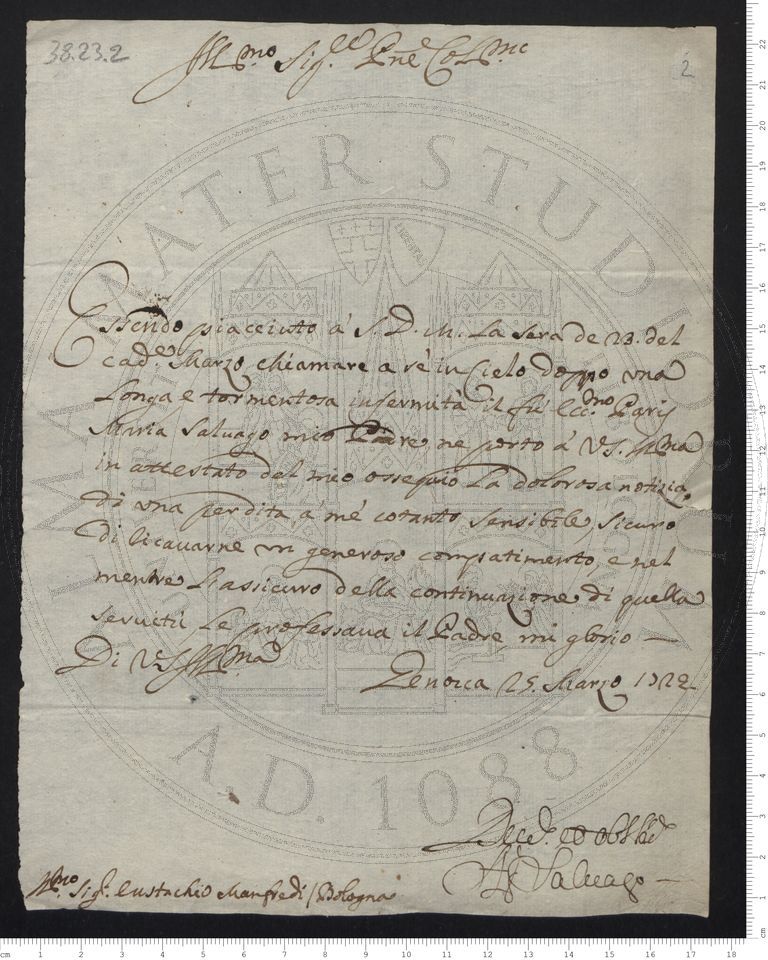 38.23.2
2
Ill.mo Sig.re Pne Col.mo
Essendo piacciuto à S. D. M. La sera de 23. del
cad.e Marzo chiamare a sè in Cielo doppo una
Longa e tormentosa infermità il fù Ecc.mo Paris
Maria Salvago mio Padre, ne porto à V.S. Ill.ma
in attestato del mio ossequio La dolorosa notizia
di una perdita, à mè cotanto sensibile, sicuro
di licavarne un generoso compatimento, e nel
mentre L'assicuro della continuazione di quella
servitù Le professava il Padre, mi glorio —
Di V.S. Ill.ma
Genova 25. Marzo 1722.
Salvago —
Ill.mo Sig.r Eustachio Manfredi / Bologna
ALMA MATER STUDIORUM
A.D. 1088
LIBERTAS